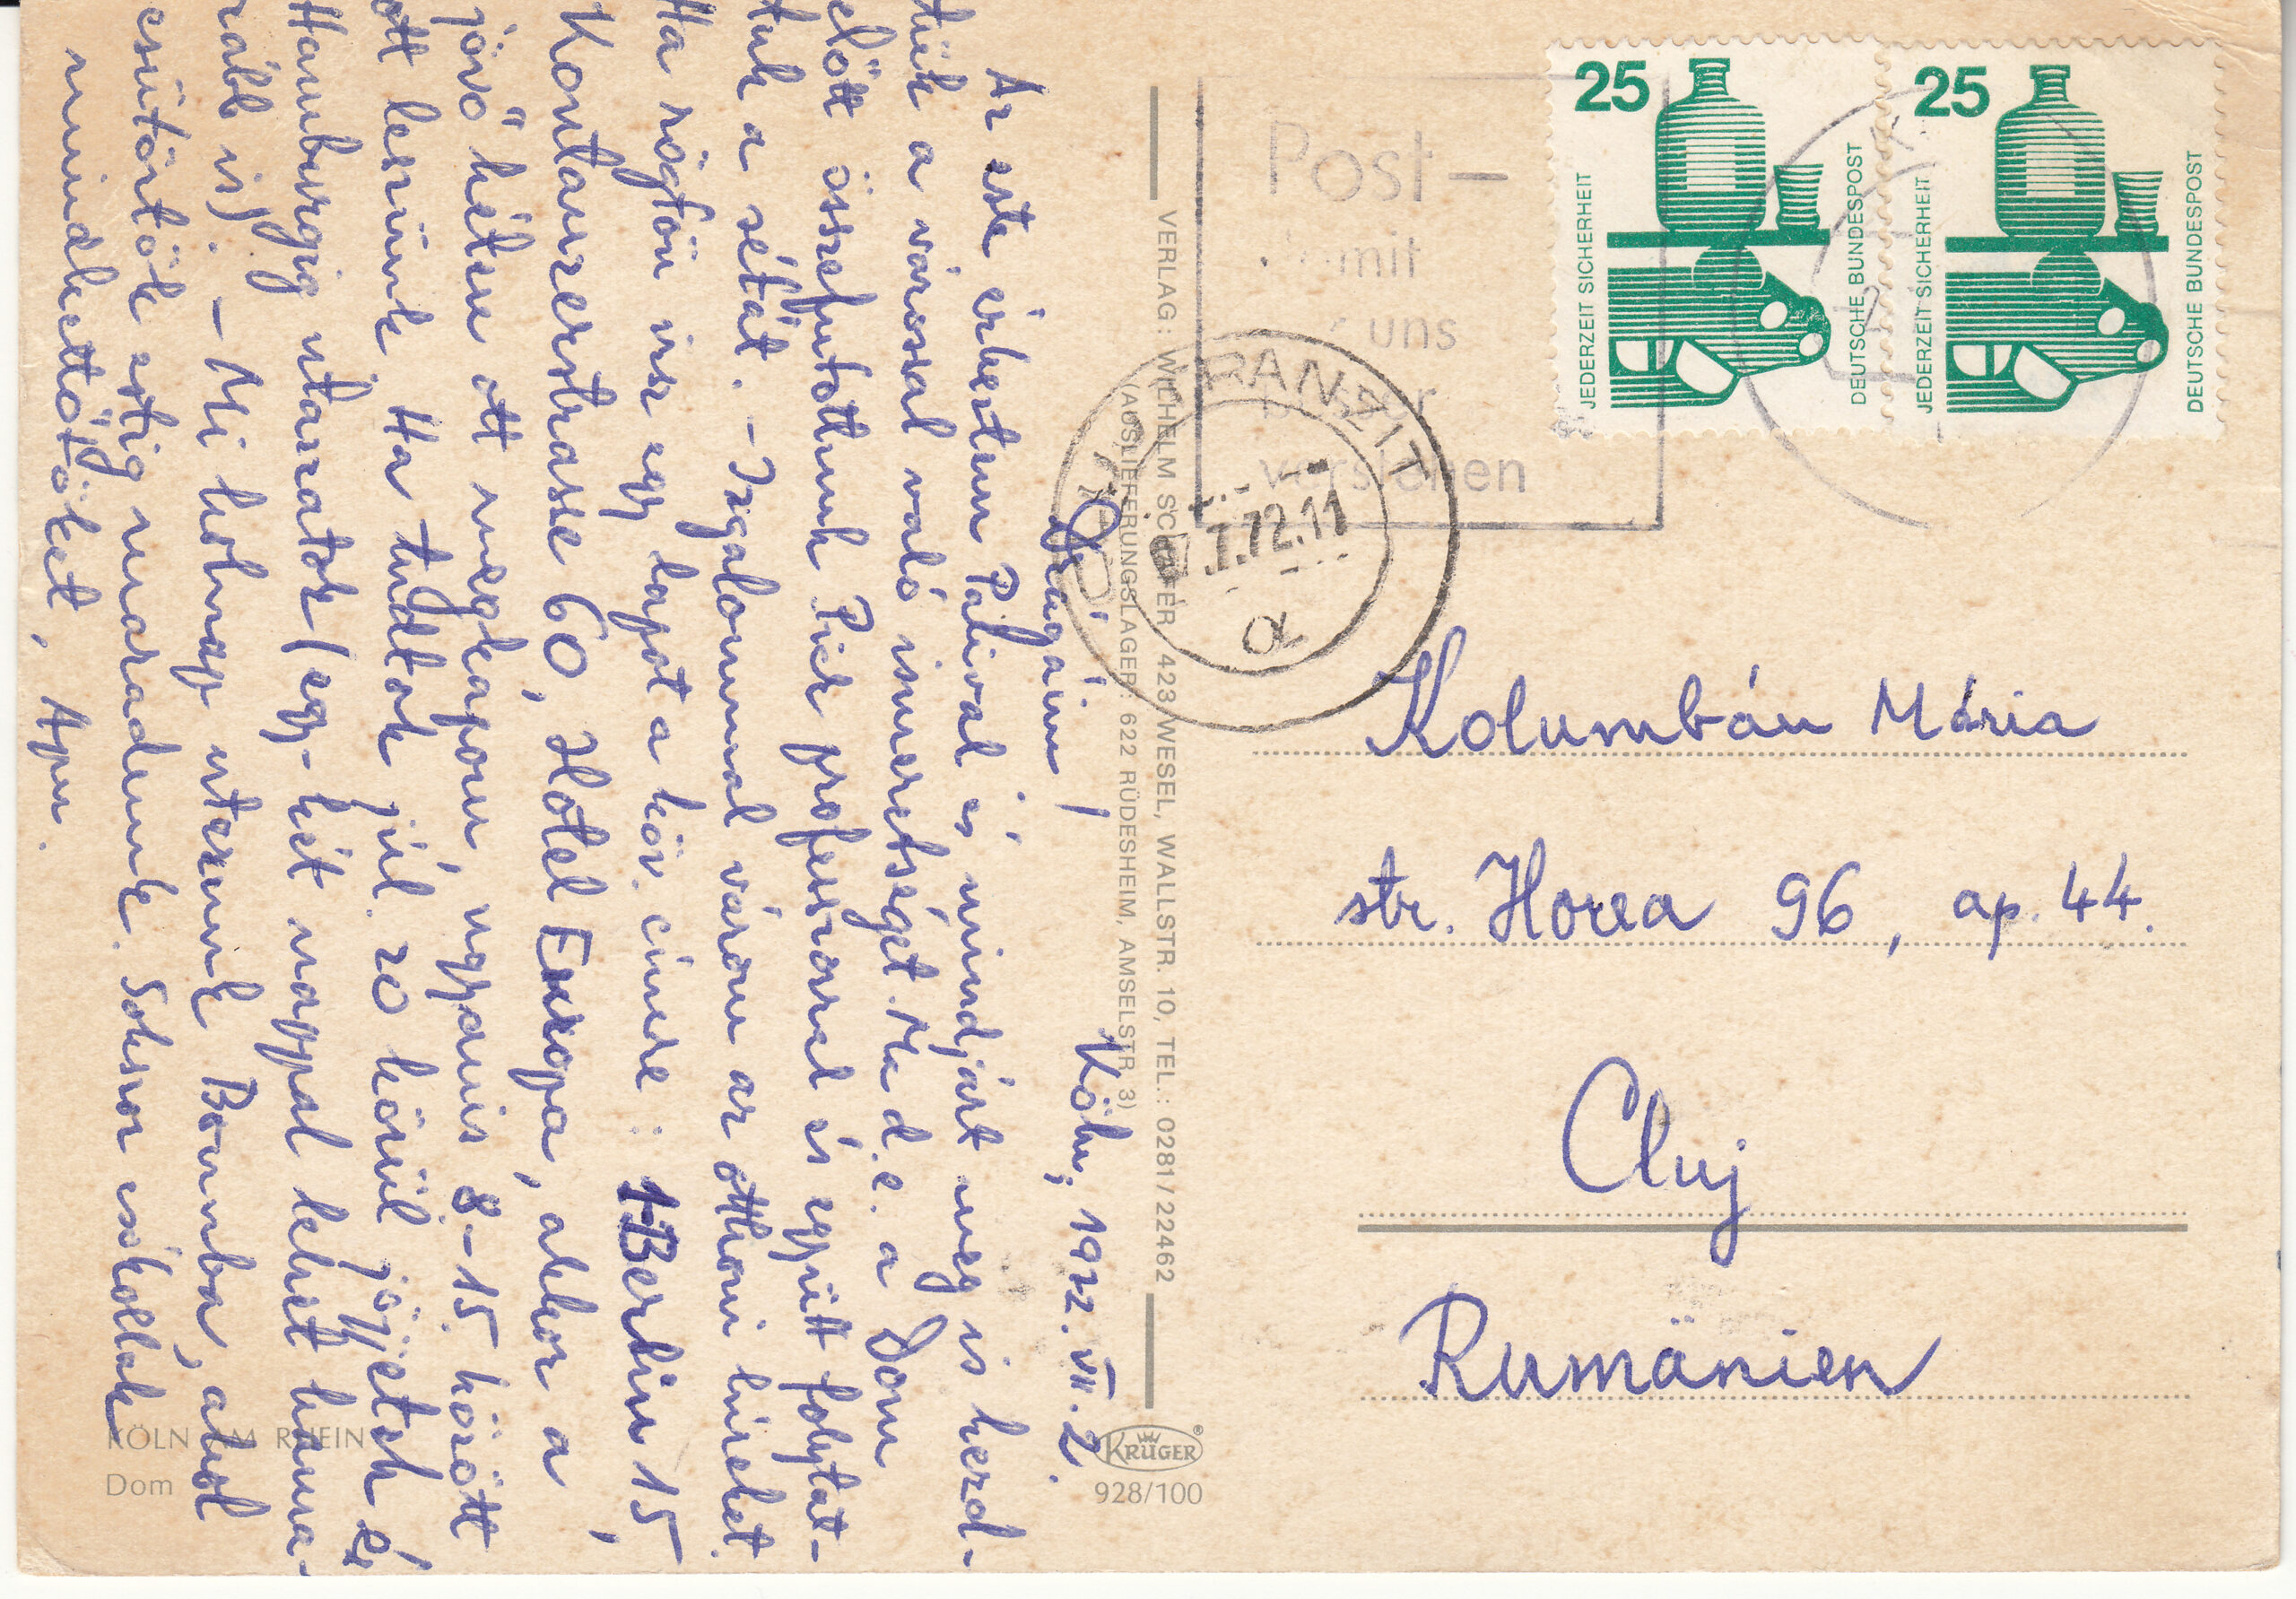 Köln, 1972. VII. 2.
Drágáim!
Az este érkeztem Palival és mindjárt meg is kezd-
tük a várossal való ismeretséget. Ma d.e. a Dom
előtt összefutottunk Pick professzorral és együtt folytat-
tuk a sétát. – Izgalommal várom az otthoni híreket.
Ha rögtön irsz egy lapot a köv. címre: 1-Berlin 15,
Konstanzerstrasse 60, Hotel Europa, akkor a
jövő héten ott megkapom, ugyanis 8.–15. között
ott leszünk. Ha tudtok júl. 20 körül jöjjetek és
Hamburgig utazzatok (egy-két nappal lehet hama-
rább is). – Mi holnap utazunk Bonnba, ahol
csütörtök estig maradunk. Sokszor csókollak
mindkettőtöket, Apu.
Kolumbán Mária
str. Horea 96, ap. 44.
Cluj
Rumänien
25
JEDERZEIT SICHERHEIT
DEUTSCHE BUNDESPOST
25
JEDERZEIT SICHERHEIT
DEUTSCHE BUNDESPOST
Post–
mit
uns
verstehen
TRANZIT
7.72.11
VERLAG: WILHELM SCHÄFER 423 WESEL, WALLSTR. 10, TEL.: 0281/22462
(AUSLIEFERUNGSLAGER: 622 RÜDESHEIM, AMSELSTR 3)
KRÜGER
928/100
KÖLN AM RHEIN
Dom